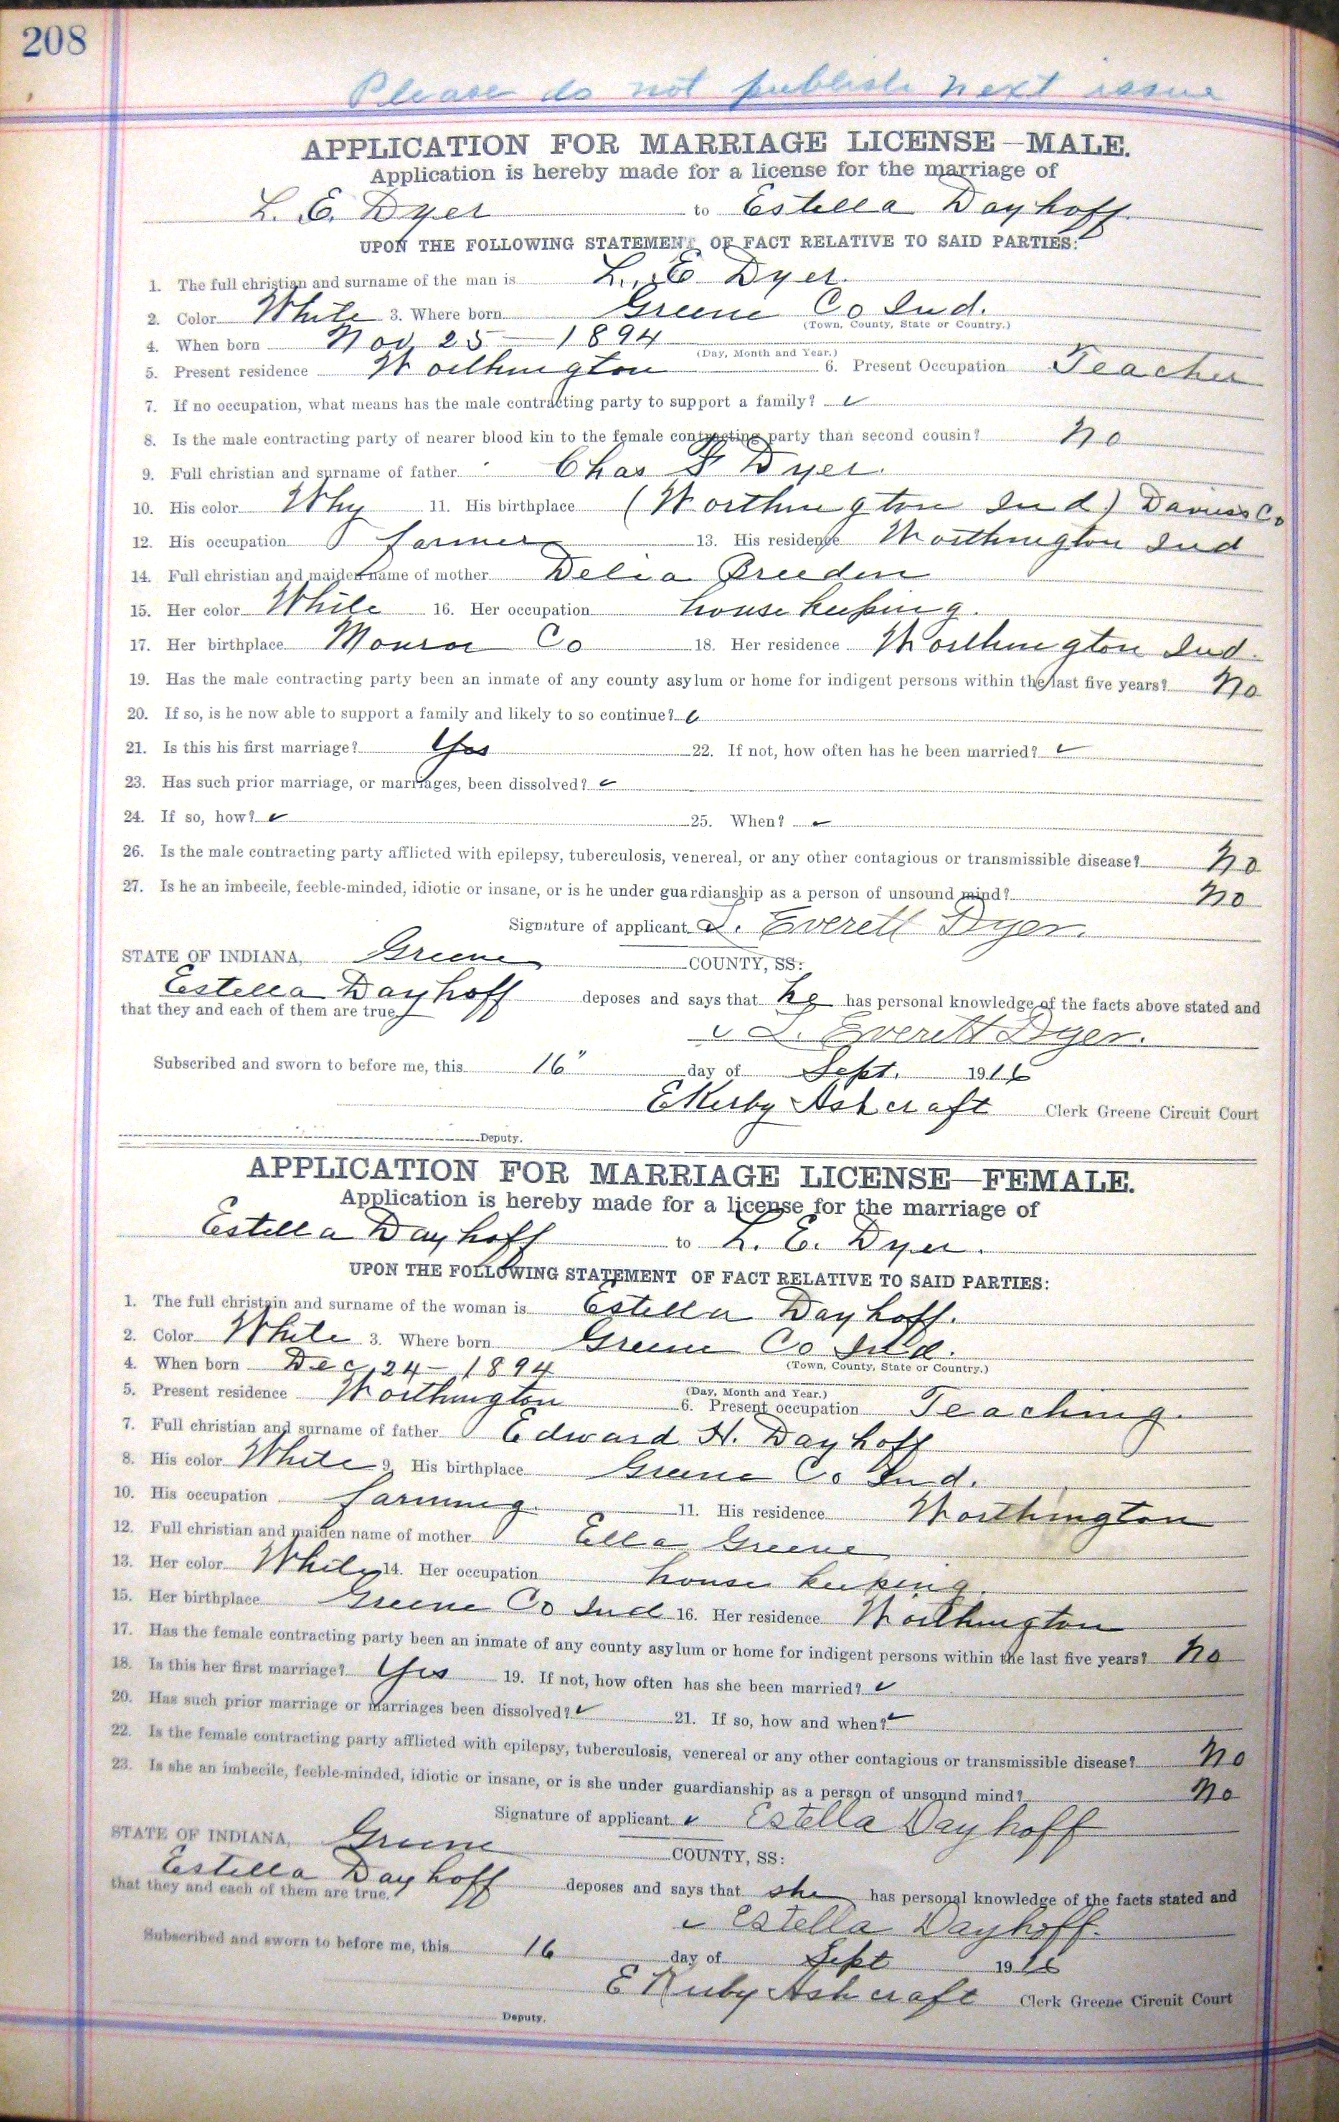 208
Please do not publish next issue
APPLICATION FOR MARRIAGE LICENSE—MALE.
Application is hereby made for a license for the marriage of
L. E. Dyer to Estella Dayhoff.
UPON THE FOLLOWING STATEMENT OF FACT RELATIVE TO SAID PARTIES:
1. The full christian and surname of the man is L. E Dyer.
2. Color White 3. Where born Greene Co Ind.
(Town, County, State or Country.)
4. When born Nov 25 — 1894
(Day, Month and Year.)
5. Present residence Worthington 6. Present Occupation Teacher
7. If no occupation, what means has the male contracting party to support a family? ✓
8. Is the male contracting party of nearer blood kin to the female contracting party than second cousin? No
9. Full christian and surname of father Chas F Dyer.
10. His color Why 11. His birthplace (Worthington Ind) Daviess Co
12. His occupation farmer 13. His residence Worthington Ind
14. Full christian and maiden name of mother Delia Breeden
15. Her color White 16. Her occupation house keeping.
17. Her birthplace Monroe Co 18. Her residence Worthington Ind.
19. Has the male contracting party been an inmate of any county asylum or home for indigent persons within the last five years? No
20. If so, is he now able to support a family and likely to so continue? ✓
21. Is this his first marriage? Yes 22. If not, how often has he been married? ✓
23. Has such prior marriage, or marriages, been dissolved? ✓
24. If so, how? ✓ 25. When? ✓
26. Is the male contracting party afflicted with epilepsy, tuberculosis, venereal, or any other contagious or transmissible disease? No
27. Is he an imbecile, feeble-minded, idiotic or insane, or is he under guardianship as a person of unsound mind? No
Signature of applicant L. Everett Dyer.
STATE OF INDIANA, Greene COUNTY, SS:
Estella Dayhoff deposes and says that he has personal knowledge of the facts above stated and
that they and each of them are true.
✓ L. Everett Dyer.
Subscribed and sworn to before me, this 16" day of Sept. 1916
E Kirby Ashcraft Clerk Greene Circuit Court
Deputy.
APPLICATION FOR MARRIAGE LICENSE—FEMALE.
Application is hereby made for a license for the marriage of
Estella Dayhoff to L. E. Dyer.
UPON THE FOLLOWING STATEMENT OF FACT RELATIVE TO SAID PARTIES:
1. The full christain and surname of the woman is Estella Dayhoff.
2. Color White 3. Where born Greene Co Ind.
(Town, County, State or Country.)
4. When born Dec 24 — 1894
(Day, Month and Year.)
5. Present residence Worthington 6. Present occupation Teaching.
7. Full christian and surname of father Edward H. Dayhoff
8. His color White 9. His birthplace Greene Co Ind.
10. His occupation farming. 11. His residence Worthington
12. Full christian and maiden name of mother Ella Greene
13. Her color White 14. Her occupation house keeping.
15. Her birthplace Greene Co Ind 16. Her residence Worthington
17. Has the female contracting party been an inmate of any county asylum or home for indigent persons within the last five years? No
18. Is this her first marriage? Yes 19. If not, how often has she been married? ✓
20. Has such prior marriage or marriages been dissolved? ✓ 21. If so, how and when? ✓
22. Is the female contracting party afflicted with epilepsy, tuberculosis, venereal or any other contagious or transmissible disease? No
23. Is she an imbecile, feeble-minded, idiotic or insane, or is she under guardianship as a person of unsound mind? No
Signature of applicant ✓ Estella Dayhoff
STATE OF INDIANA, Greene COUNTY, SS:
Estella Dayhoff deposes and says that she has personal knowledge of the facts stated and
that they and each of them are true.
✓ Estella Dayhoff.
Subscribed and sworn to before me, this 16 day of Sept 1916
E Kirby Ashcraft Clerk Greene Circuit Court
Deputy.